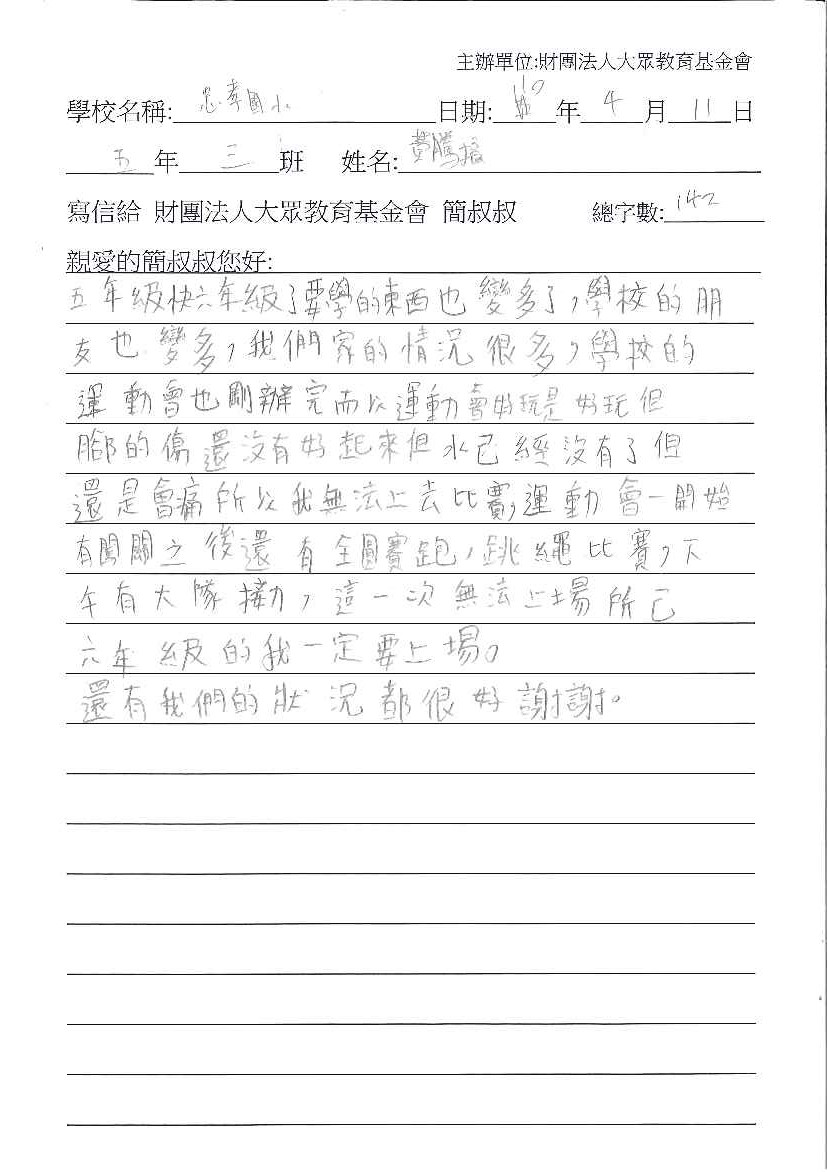 主辦單位:財團法人大眾教育基金會
學校名稱: 忠孝國小 日期: 110 年 4 月 11 日
五 年 三 班 姓名: 費騰
寫信給 財團法人大眾教育基金會 簡叔叔 總字數: 142
親愛的簡叔叔您好:
五年級快六年級了要學的東西也變多了,學校的朋
友也變多,我們家的情況很多,學校的
運動會也剛辦完而以運動會好玩是好玩但
腳的傷還沒有好起來但水已經沒有了但
還是會痛所以我無法上去比賽,運動會一開始
有闖關之後還有全圓賽跑,跳繩比賽,下
午有大隊接力,這一次無法上場所已
六年級的我一定要上場。
還有我們的狀況都很好謝謝。